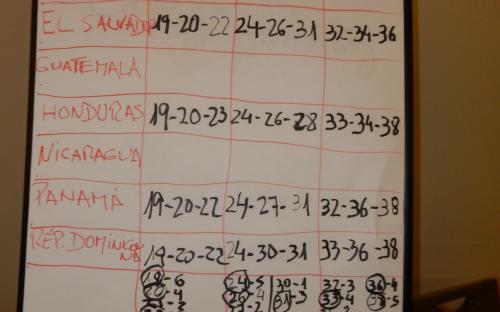 EL SALVADOR 19-20-22 24-26-31 32-34-36
GUATEMALA
HONDURAS 19-20-23 24-26-28 33-34-38
NICARAGUA
PANAMÁ 19-20-22 24-27-31 32-36-38
REP. DOMINICANA 19-20-22 24-30-31 33-36-38
19-6 24-5 30-1 32-3 36-4
20-4 26-4 31-3 33-4 38-5